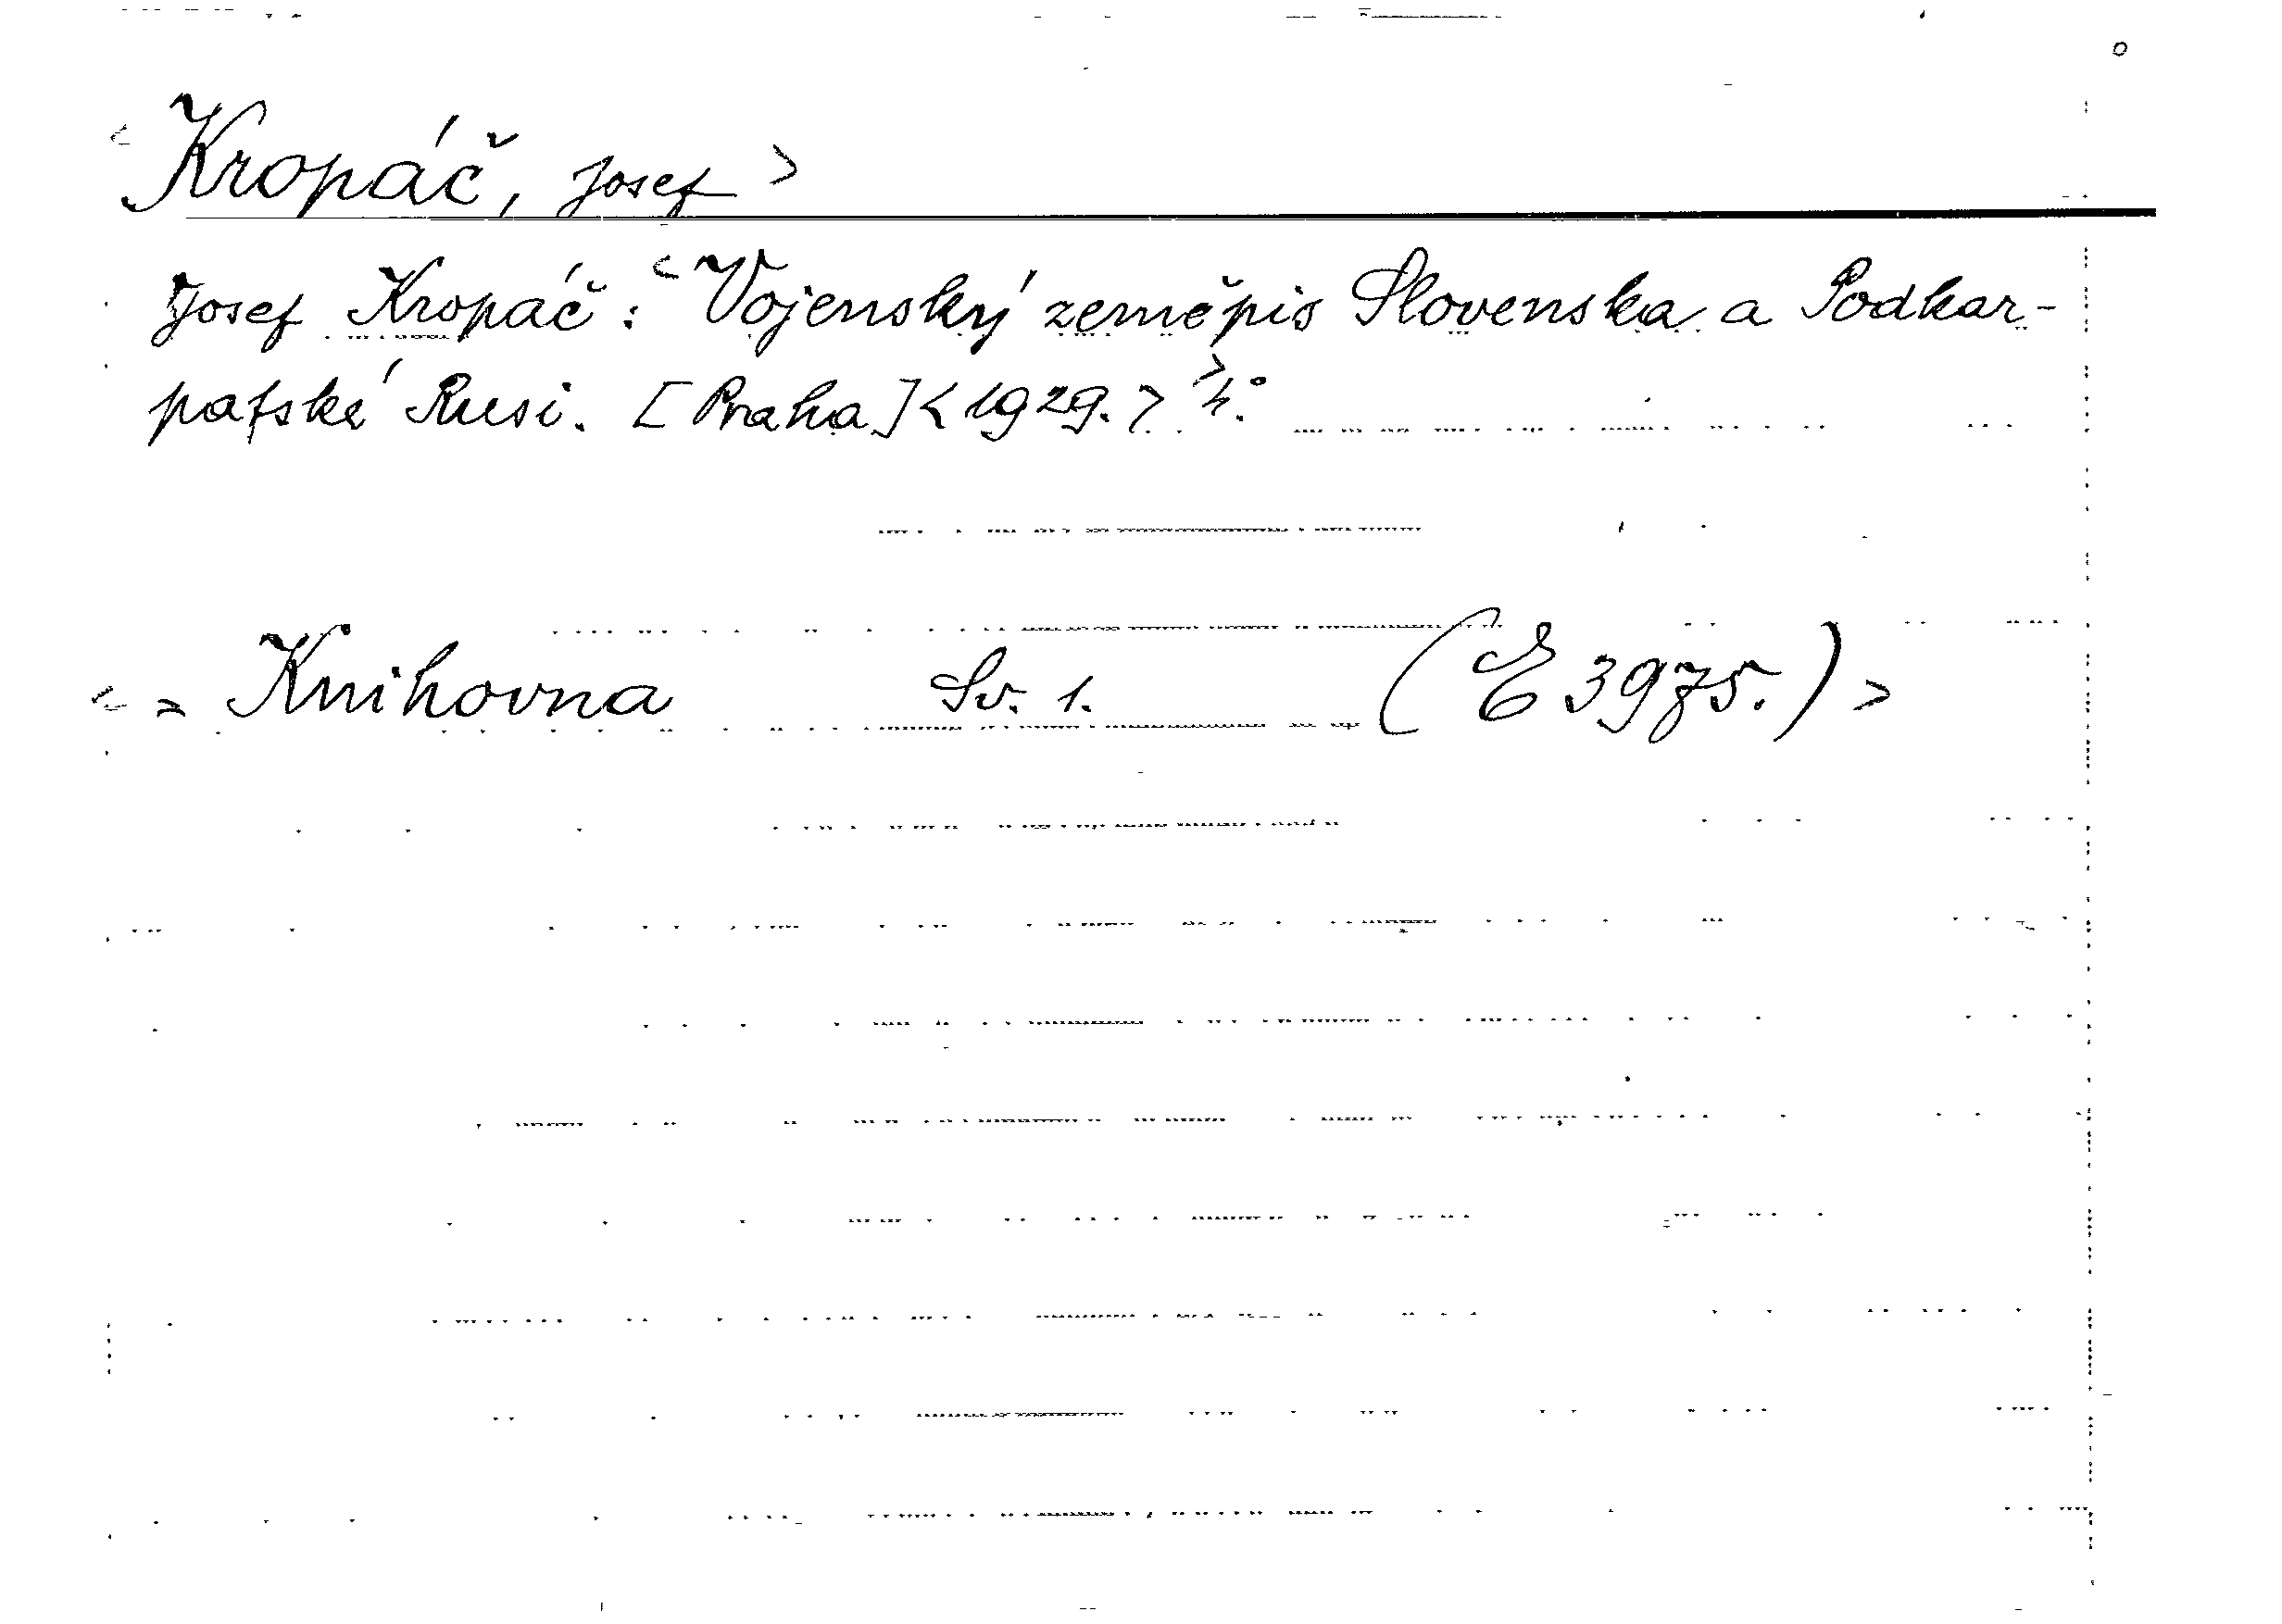 <Kropáč, Josef>
Josef Kropáč: <Vojenský zeměpis Slovenska a Podkar-
patské Rusi.> [Praha] <1929.> 4°.
<= Knihovna Sv. 1. (E 3975.)>